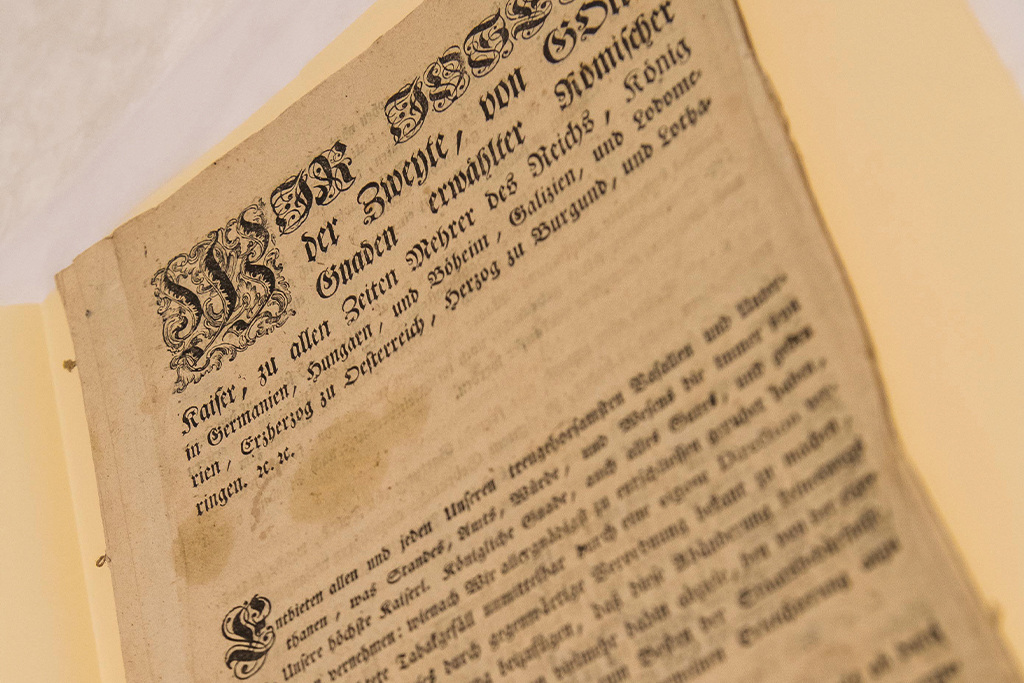 WJR JOSEPH
der Zweyte, von GOttes
Gnaden erwählter Römischer
Kaiser, zu allen Zeiten Mehrer des Reichs, König
in Germanien, Hungarn, und Böheim, Galizien, und Lodome-
rien, Erzherzog zu Oesterreich, Herzog zu Burgund, und Loth-
ringen. ꝛc. ꝛc.
Entbieten allen und jeden Unseren treugehorsamsten Vasallen und Unter-
thanen, was Standes, Amts, Würde, und Wesens die immer seynd
Unsere höchste Kaiserl. Königliche Gnade, auch alles Gutes, und geben
vernehmen: wienach Wir allergnädigst zu entschliessen geruhet haben,
Tabakgefäll unmittelbar durch eine eigene Direction
durch gegenwärtige Verordnung bekant zu machen,
beyzufügen, daß diese Abänderung keinerwegs
dahin abziele, den von der
zum Besten der Staatsbedürfniß